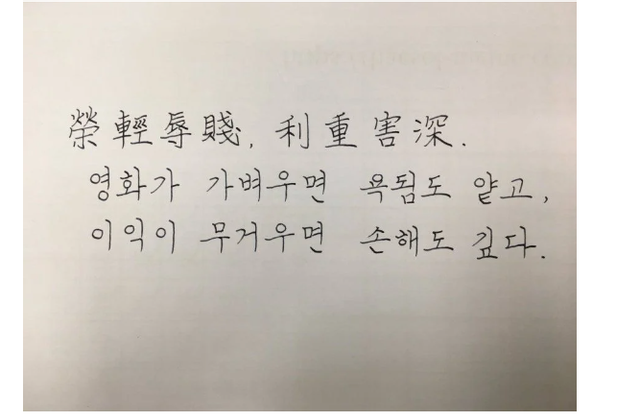 榮輕辱賤, 利重害深.
영화가 가벼우면 욕됨도 얕고,
이익이 무거우면 손해도 깊다.